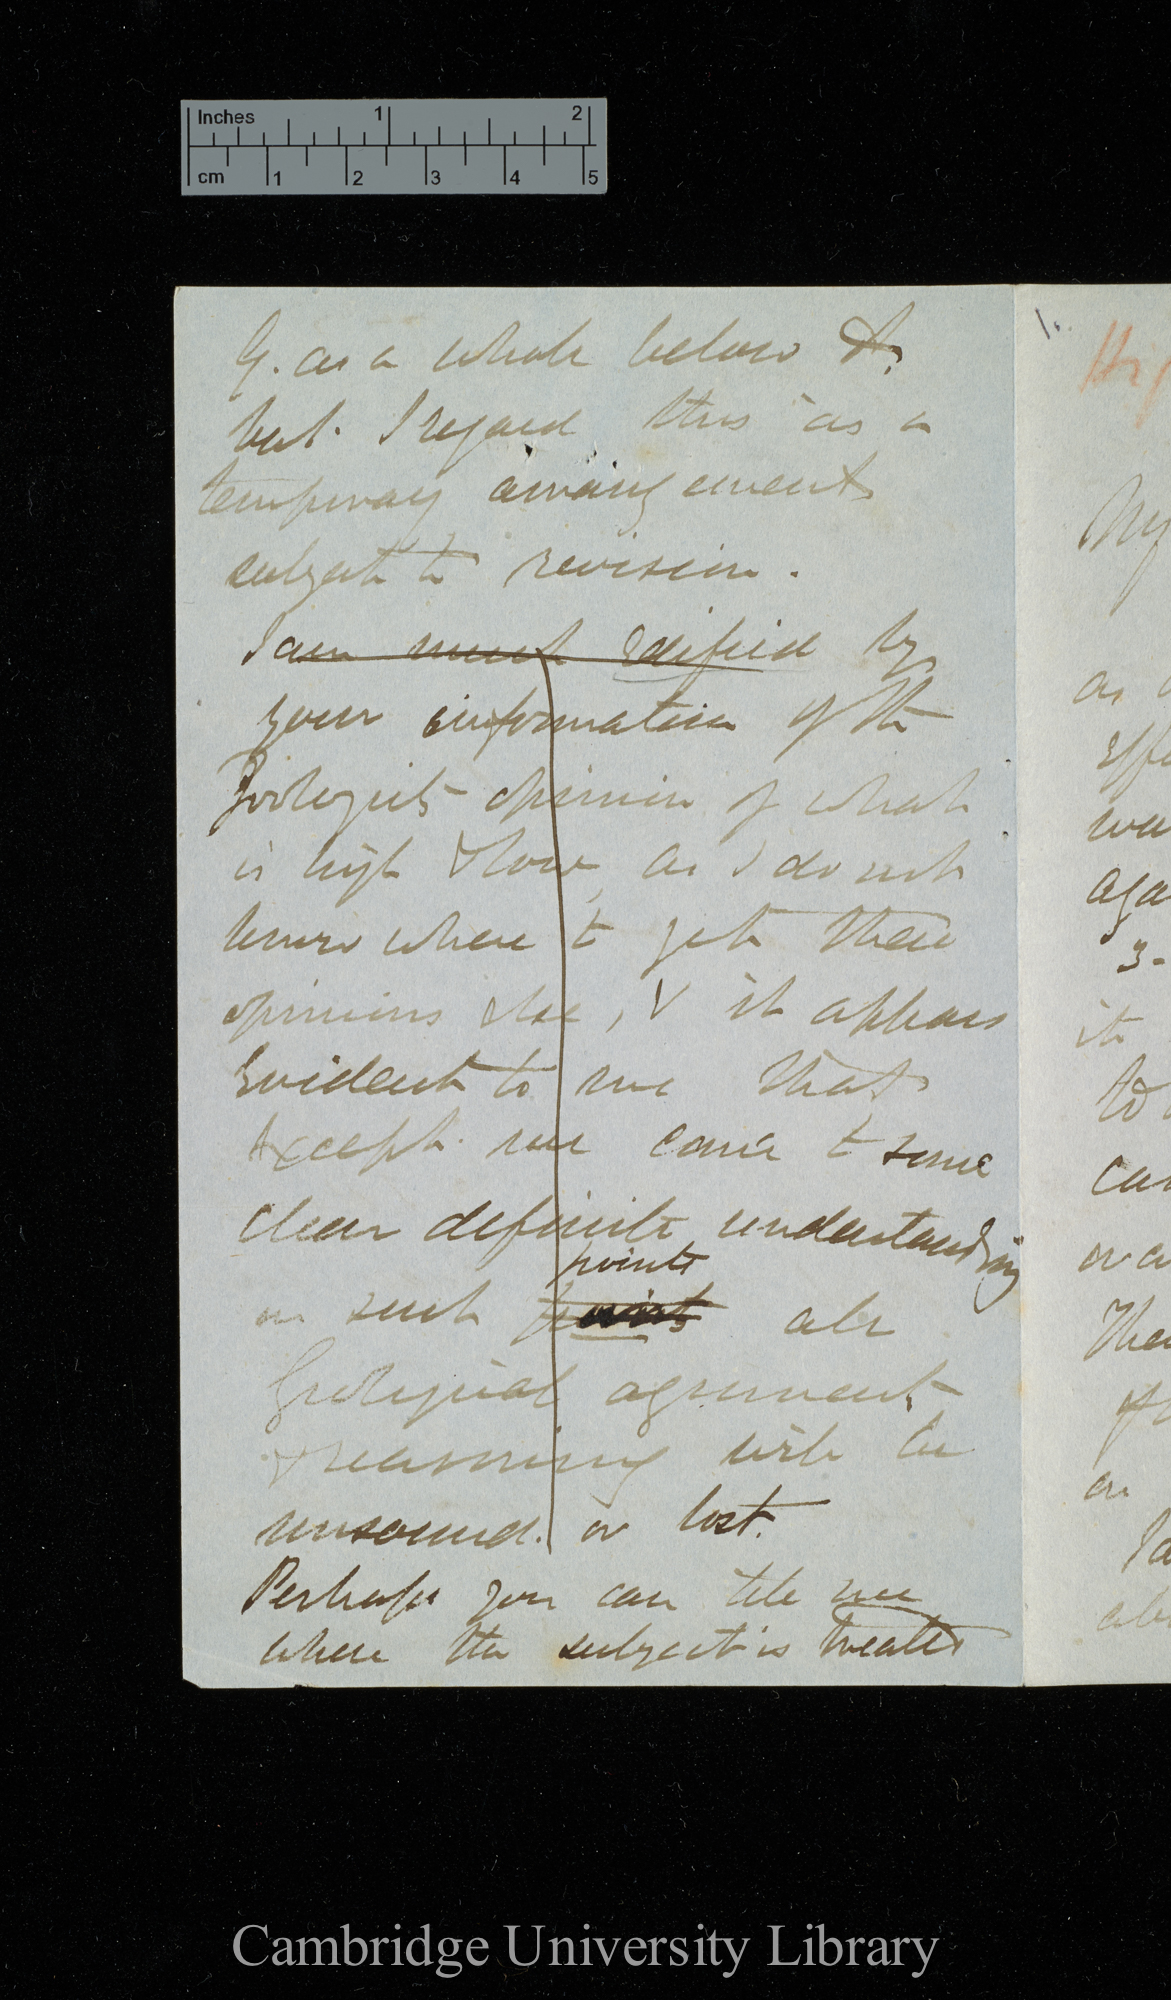 Inches 1 2
cm 1 2 3 4 5
G. as a whole below A.
but I regard this as a
temporary arrangement
subject to revision.
I am much edified by
your information of the
Zoologists opinion of what
is high & low, as I do not
know where to get these
opinions else, & it appears
evident to me that
except we come to some
clear definite understanding
points
on such points all
Geological agreement
& reasoning will be
unsound or lost.
Perhaps you can tell me
where the subject is treated
1.
Hig
My
as
effe
wa
aga
3-
it
to
can
or a
The
of
on
Ia
ab
Cambridge University Library